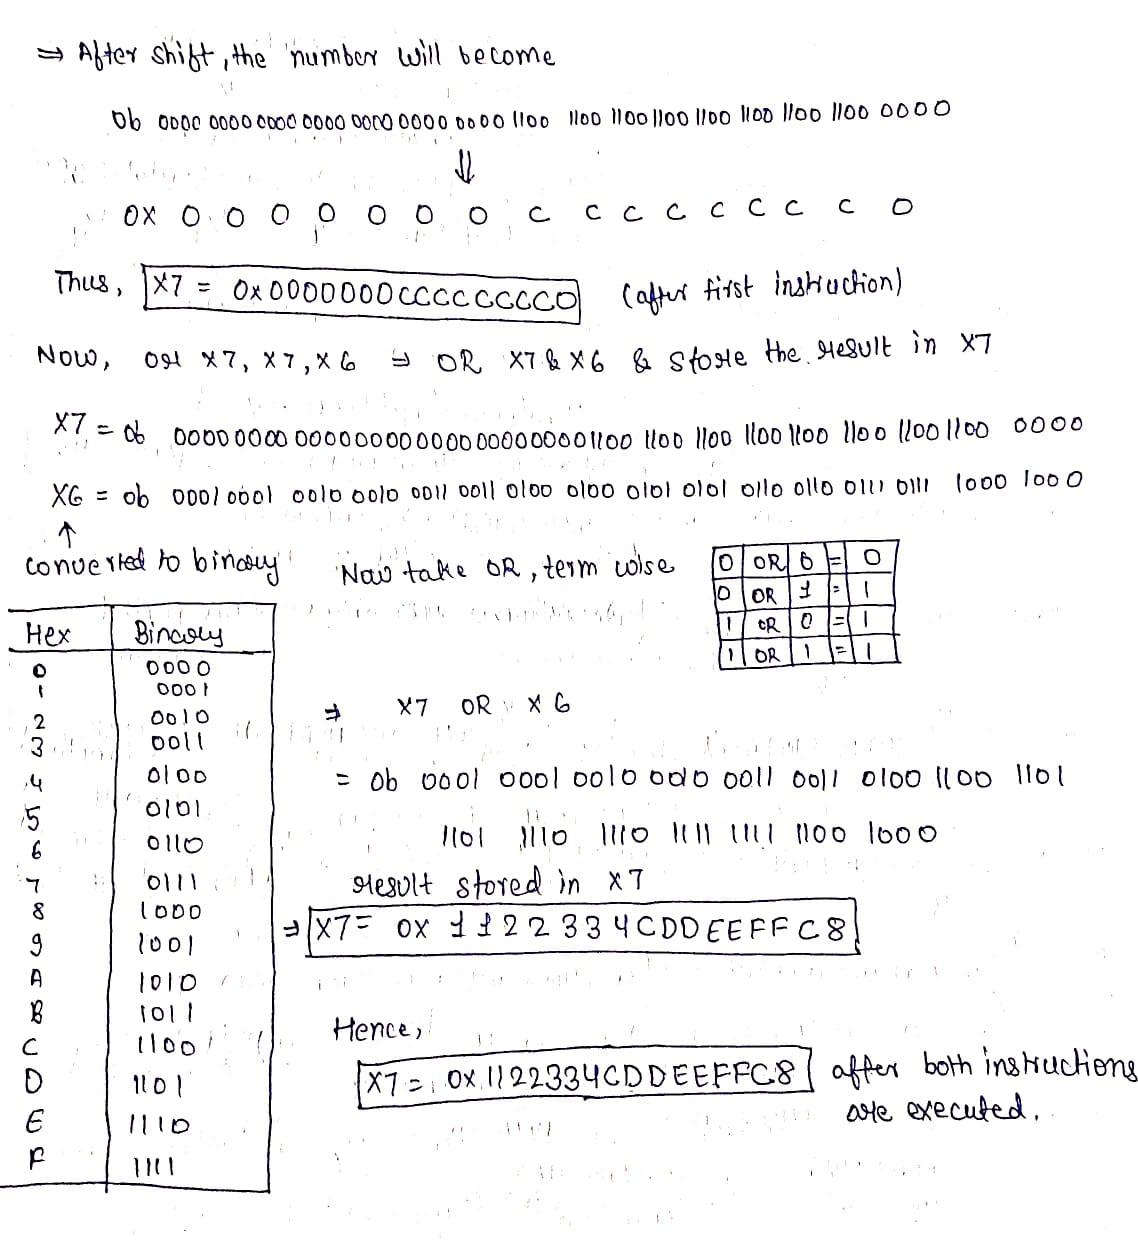 ⇒ After shift, the number will become
0b 0000 0000 0000 0000 0000 0000 0000 1100 1100 1100 1100 1100 1100 1100 1100 0000
⇓
0x 0 0 0 0 0 0 0 C C C C C C C C 0
Thus, X7 = 0x0000000CCCCCCCC0 (after first instruction)
Now, or x7, x7, x6 ⇒ OR X7 & X6 & store the result in x7
X7 = 0b 0000 0000 0000 0000 0000 0000 0000 1100 1100 1100 1100 1100 1100 1100 1100 0000
X6 = 0b 0001 0001 0010 0010 0011 0011 0100 0100 0101 0101 0110 0110 0111 0111 1000 1000
↑
converted to binary
Now take OR, term wise
0 OR 0 = 0
0 OR 1 = 1
1 OR 0 = 1
1 OR 1 = 1
Hex Binary
0 0000
1 0001
2 0010
3 0011
4 0100
5 0101
6 0110
7 0111
8 1000
9 1001
A 1010
B 1011
C 1100
D 1101
E 1110
F 1111
⇒ X7 OR X6
= 0b 0001 0001 0010 0010 0011 0011 0100 1100 1101
1101 1110 1110 1111 1111 1100 1000
result stored in x7
⇒ X7 = 0x 1122334CDDEEFFC8
Hence,
X7 = 0x1122334CDDEEFFC8 after both instructions
are executed.